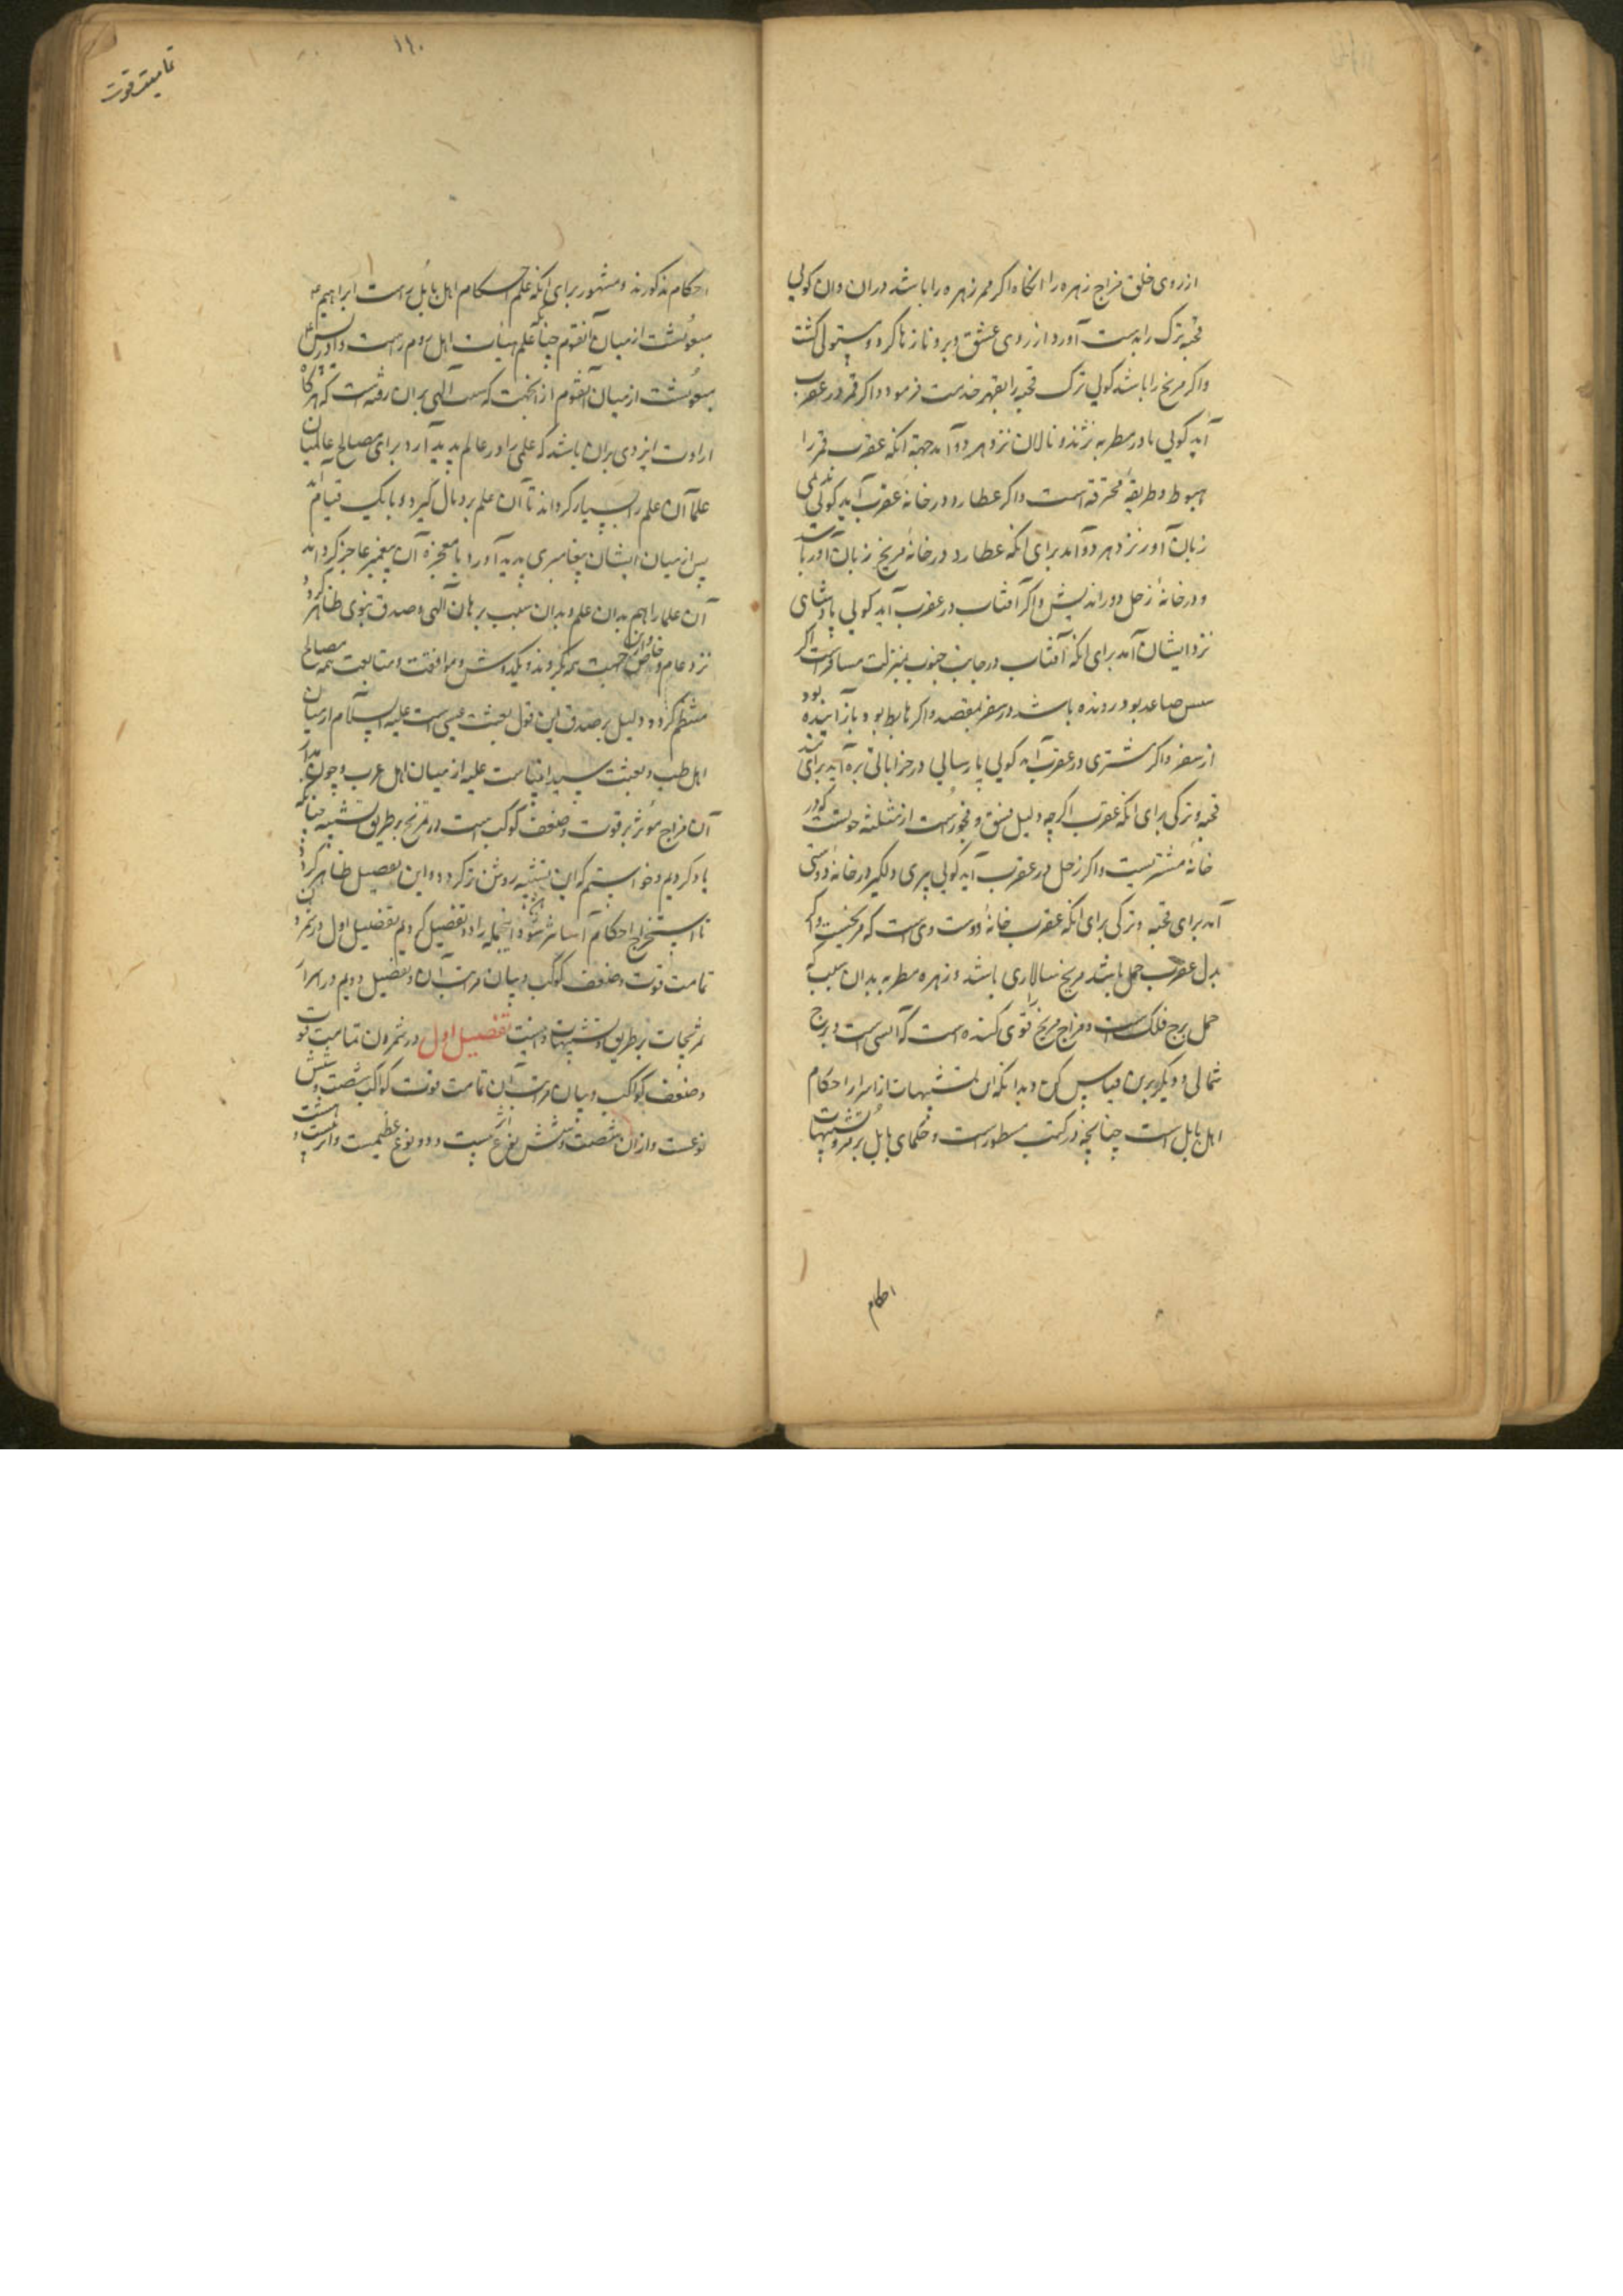 از روی خلق مزاج زهره را انگاه اگر ممر زهره را باشد دران وان کویی
قحبه ترک را بدست آورد از روی عشق و برو نازها کرد و مستولی کشت
واگر مریخ را باشد کویی ترک قحبه را بقهر خدمت فرمود واگر قمر در عقرب
آید کویی مادر مطربه نژند و نالان نزد هر دو آمد جهة انکه عقرب قمر را
هبوط و طریقهٔ محترقه است واگر عطارد در خانه عقرب آید کویی
زبان آور نزد هر دو آمد برای انکه عطارد در خانهٔ مریخ زبان آور باشد
و در خانهٔ زحل دوراندیش واگر آفتاب در عقرب آید کویی پادشاهی
نزد ایشان آمد برای انکه آفتاب در جانب جنوب بمنزلت مسافرست اگر
سس صاعد بود رونده باشد در سفر بمقصد واگر هابط بود باز آینده بود
از سفر واگر مشتری در عقرب آید کویی پارسایی در خراباتی بره آید برای
قحبه و ترکی برای انکه عقرب اگرچه دلیل فسق و فجورست از مثلثه حوتست که در
خانه مشتریست واگر زحل در عقرب آید کویی پیری دلگیر در خانهٔ دوستی
آمد برای قحبه و ترکی برای انکه عقرب خانهٔ دوست وی است که مریخست واگر
بدل عقرب حمل باشد مریخ سالاری باشد و زهره مطربه بدان سبب که
حمل برج فلک است و مزاج مریخ را قوی کننده است که آتشی است و برج
شمالی و دیگر برین قیاس کن و بدانکه این تشبیهات از اسرار احکام
اهل بابل است چنانچه در کتب مسطورست و حکمای بابل برموز تشبیهات
احکام
۱۱۰
تمامیت قوت
احکام مذکورند و مشهور برای انکه علم احکام اهل بابل راست ابراهیم ع
مبعوثست از میان آنقوم چنانکه علم هیات اهل روم راست و ادریس ع
مبعوثست از میان آنقوم از انجهت که سنت الهی بران رفته است که هرگاه
ارادت ایزدی بران باشد که علمی را در عالم پدید آرد برای مصالح عالمیان
علما آن علم را بسیار کرداند تا آن علم پر و بال گیرد و بانک قیام
پس از میان ایشان پیغامبری پدید آورد با معجزه آن پیغمبر عاجز کرداند
آن علما را هم بدان علم و بدان سبب برهان الهی و صدق نبوی ظاهر گردد
نزد عام و خاص و ازین جهت همه بگروند و یکدست و موافقت و متابعت همه مصالح
منتظم گردد و دلیل بر صدق این قول بعثت عیسی است علیه السلام از میان
اهل طب و بعثت سید انبیاست علیه از میان اهل عرب و چون مدار
آن مزاج موثر بر قوت و ضعف کوکب است در تمزیج بر طریق تشبیه چنانکه
یاد کردیم و خواستیم که این تشبیه روشن‌تر گردد و این تفصیل ظاهر کردن
تا استخراج احکام آسان‌تر شود انجمله را دو تفصیل کردیم تفصیل اول در شمردن
تمامت قوت و ضعف کوکب و بیان مراتب آن و تفصیل دویم در اسرار
تمزیجات بر طریق تشبیهات دانستن تفصیل اول در شمردن تمامیت قوت
و ضعف کواکب و بیان مراتب آن تمامت قوت کواکب شصت و شش
نوعست و ازان شصت و شش نوع دو نوع عظیمست و ازو بیست و هشت